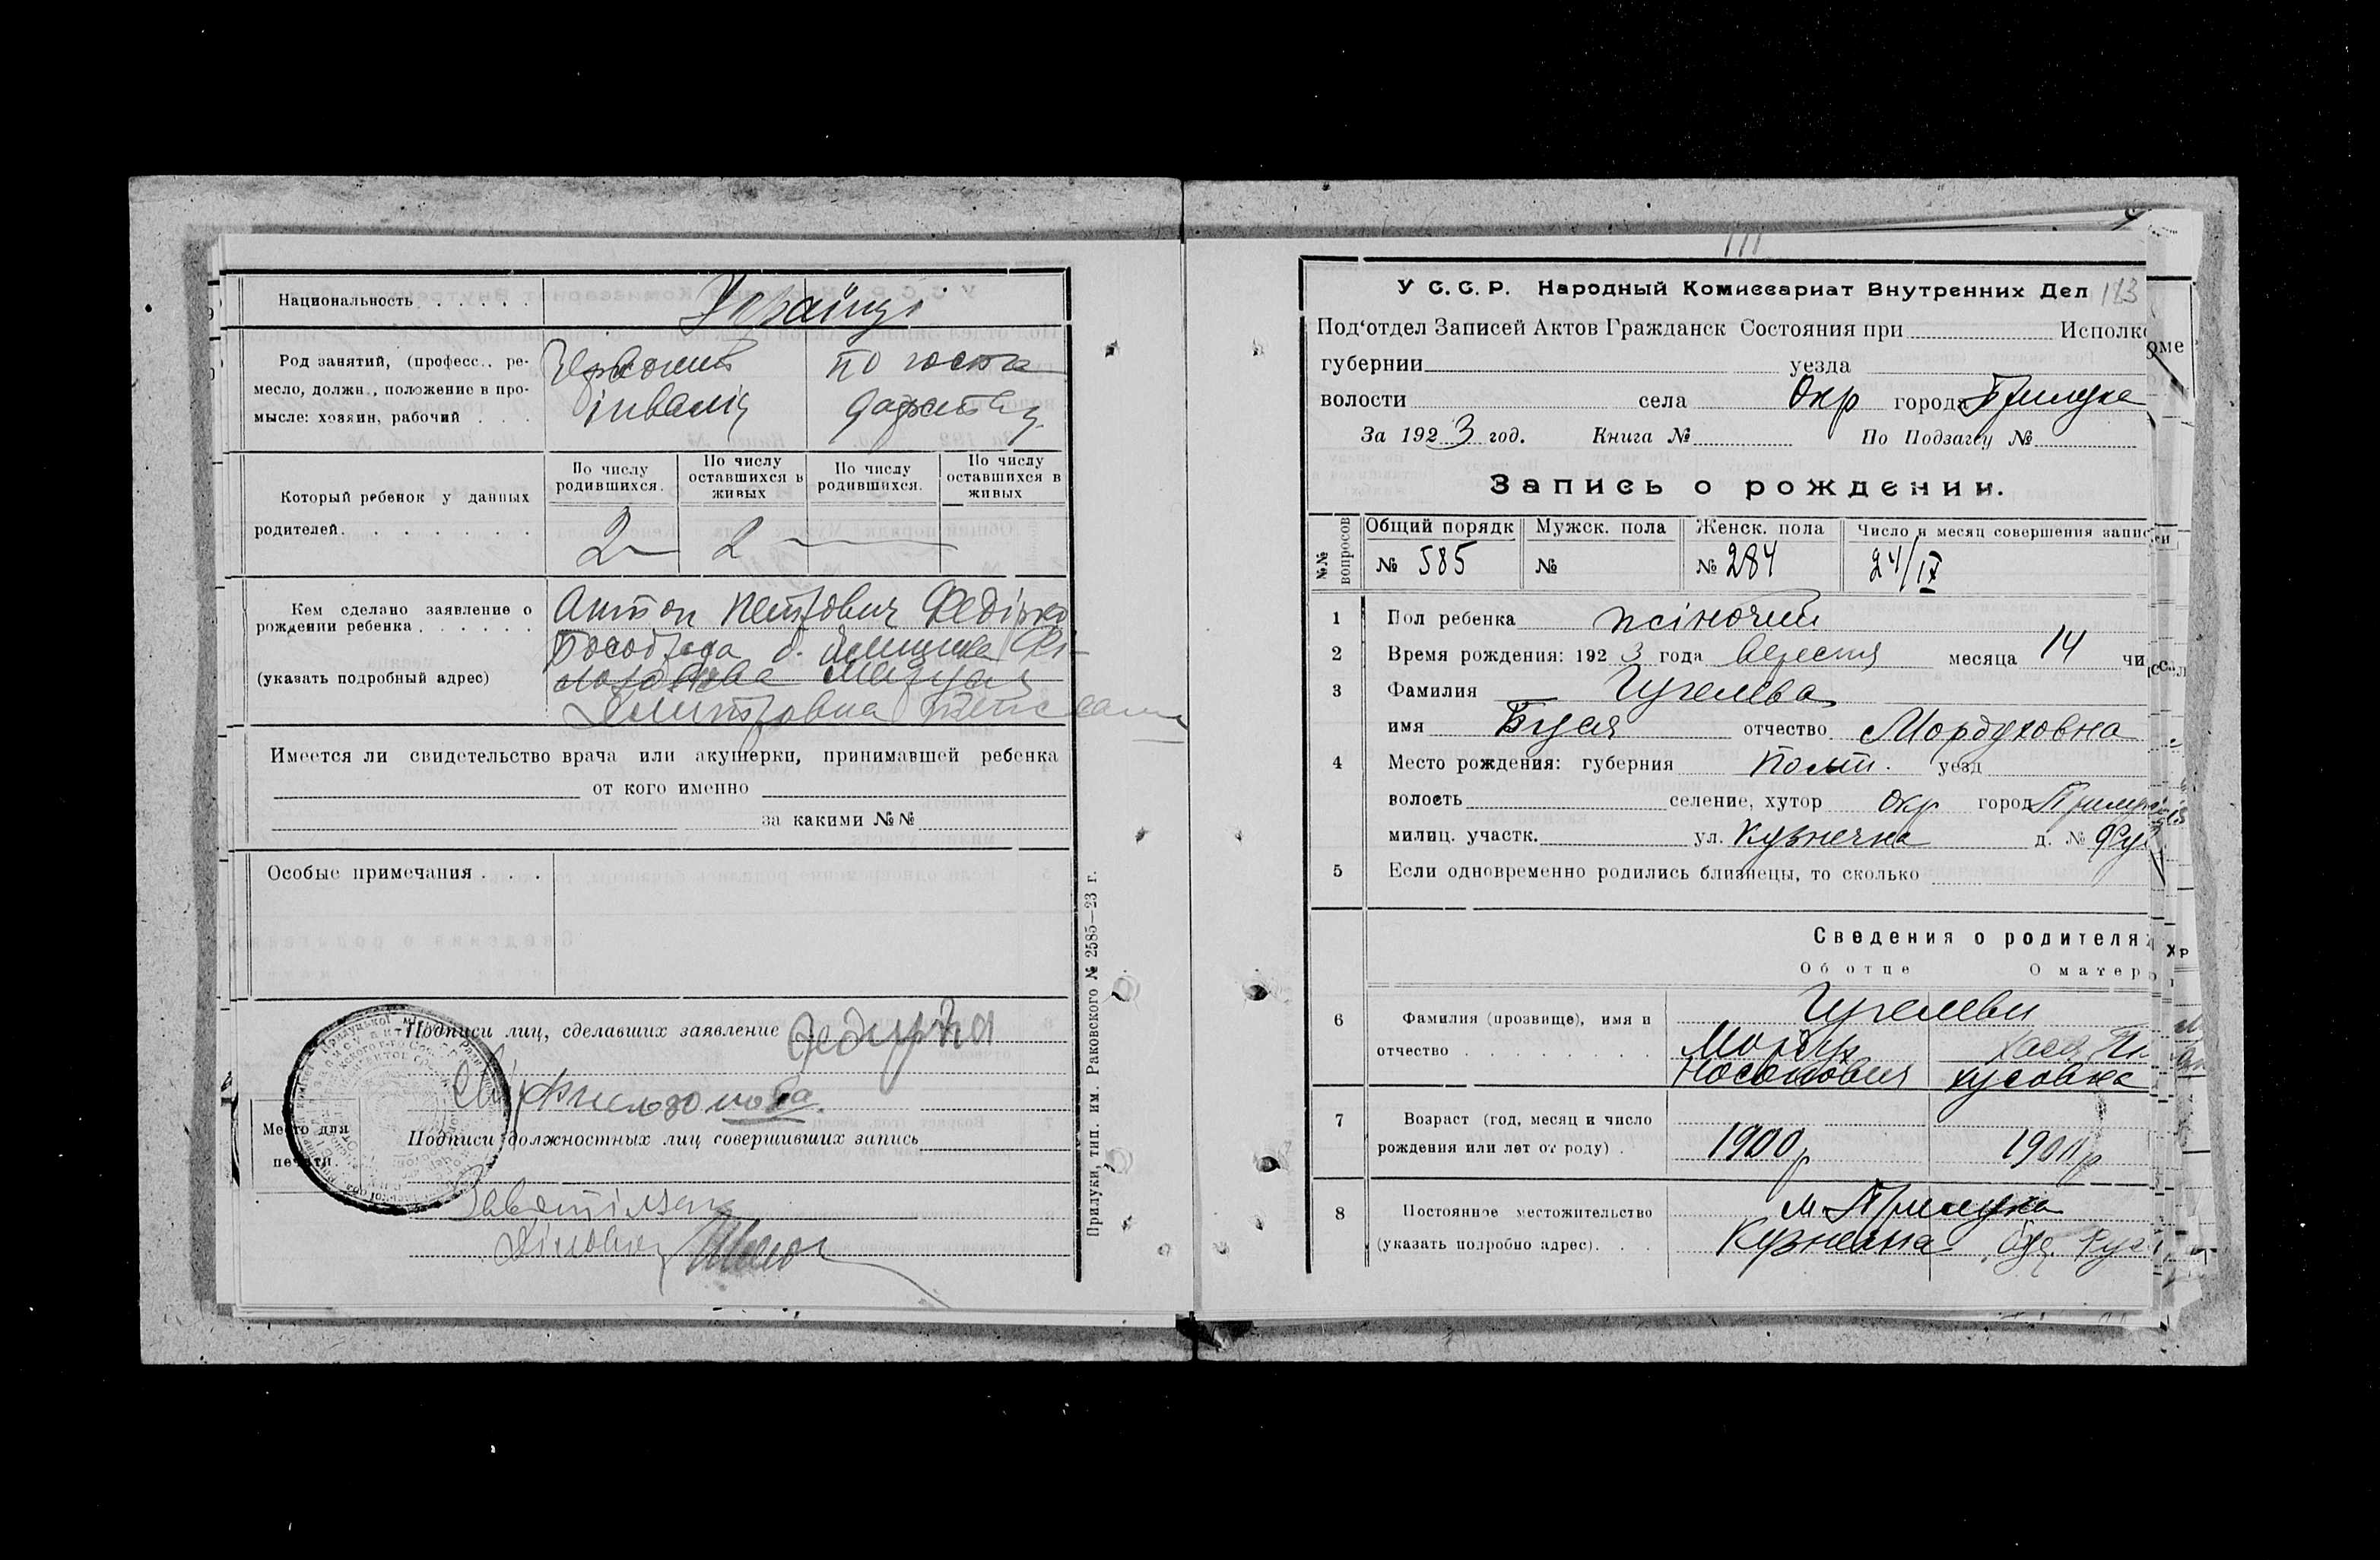 Национальность . . . . . Українці
Род занятий, (професс., ре-
месло, должн., положение в про-
мысле: хозяин, рабочий . . .
Червоний інвалід
по госпо
дарству
Который ребенок у данных
родителей. . . . . . .
По числу родившихся.
По числу оставшихся в живых
По числу родившихся.
По числу оставшихся в живых
2 2
Кем сделано заявление о
рождении ребенка . . . . . .
(указать подробный адрес)
Антон Петрович Федірко
Дмитровна
Имеется ли свидетельство врача или акушерки, принимавшей ребенка
от кого именно
за какими №№
Особые примечания . . .
Подписи лиц, сделавших заявление
Место для
печати.
Подписи должностных лиц совершивших запись
Діловод
Прилуки, тип. им. Раковского № 2585—23 г.
111
У С. С. Р. Народный Комиссариат Внутренних Дел 113
Под‘отдел Записей Актов Гражданск Состояния при Исполк
губернии уезда
волости села Окр города Прилука
За 1923 год. Книга № По Подзагсу №
Запись о рождении.
№№ вопросов
Общий порядк Мужск. пола Женск. пола Число и месяц совершения записи
№ 585 № № 284 24/IX
1 Пол ребенка жіночий
2 Время рождения: 1923 года вересня месяца 14 чи
3 Фамилия Гугелева
имя Буся отчество Мордуховна
4 Место рождения: губерния Полт. уезд
волость селение, хутор Окр город Прилука
милиц. участк. ул. Кузнечна д. №
5 Если одновременно родились близнецы, то сколько
Сведения о родителях
Об отце О матер
6 Фамилия (прозвище), имя и
отчество . . . . . . . .
Гугелеви
Мордух
Носонович
Хася Пи
хусовна
7 Возраст (год, месяц и число
рождения или лет от роду) .
1900р 1900р
8 Постоянное местожительство
(указать подробно адрес). . .
м. Прилука
Кузнечна буд.